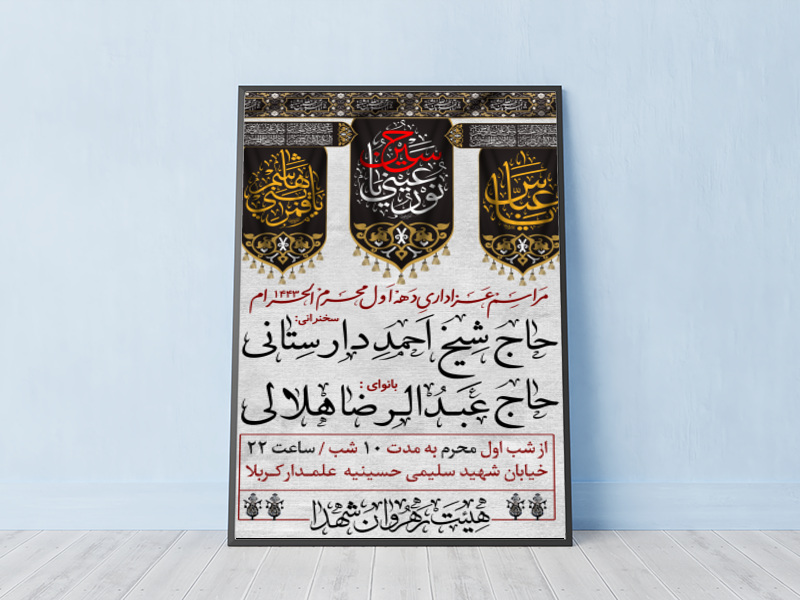 یا قمر بنی هاشم
حسین
نور عینی یا
یا عباس
مراسم عزاداری دهه اول محرم الحرام ۱۴۴۳
سخنرانی:
حاج شیخ احمد دارستانی
بانوای :
حاج عبدالرضا هلالی
از شب اول محرم به مدت ۱۰ شب / ساعت ۲۲
خیابان شهید سلیمی حسینیه علمدار کربلا
هیئت رهروان شهدا